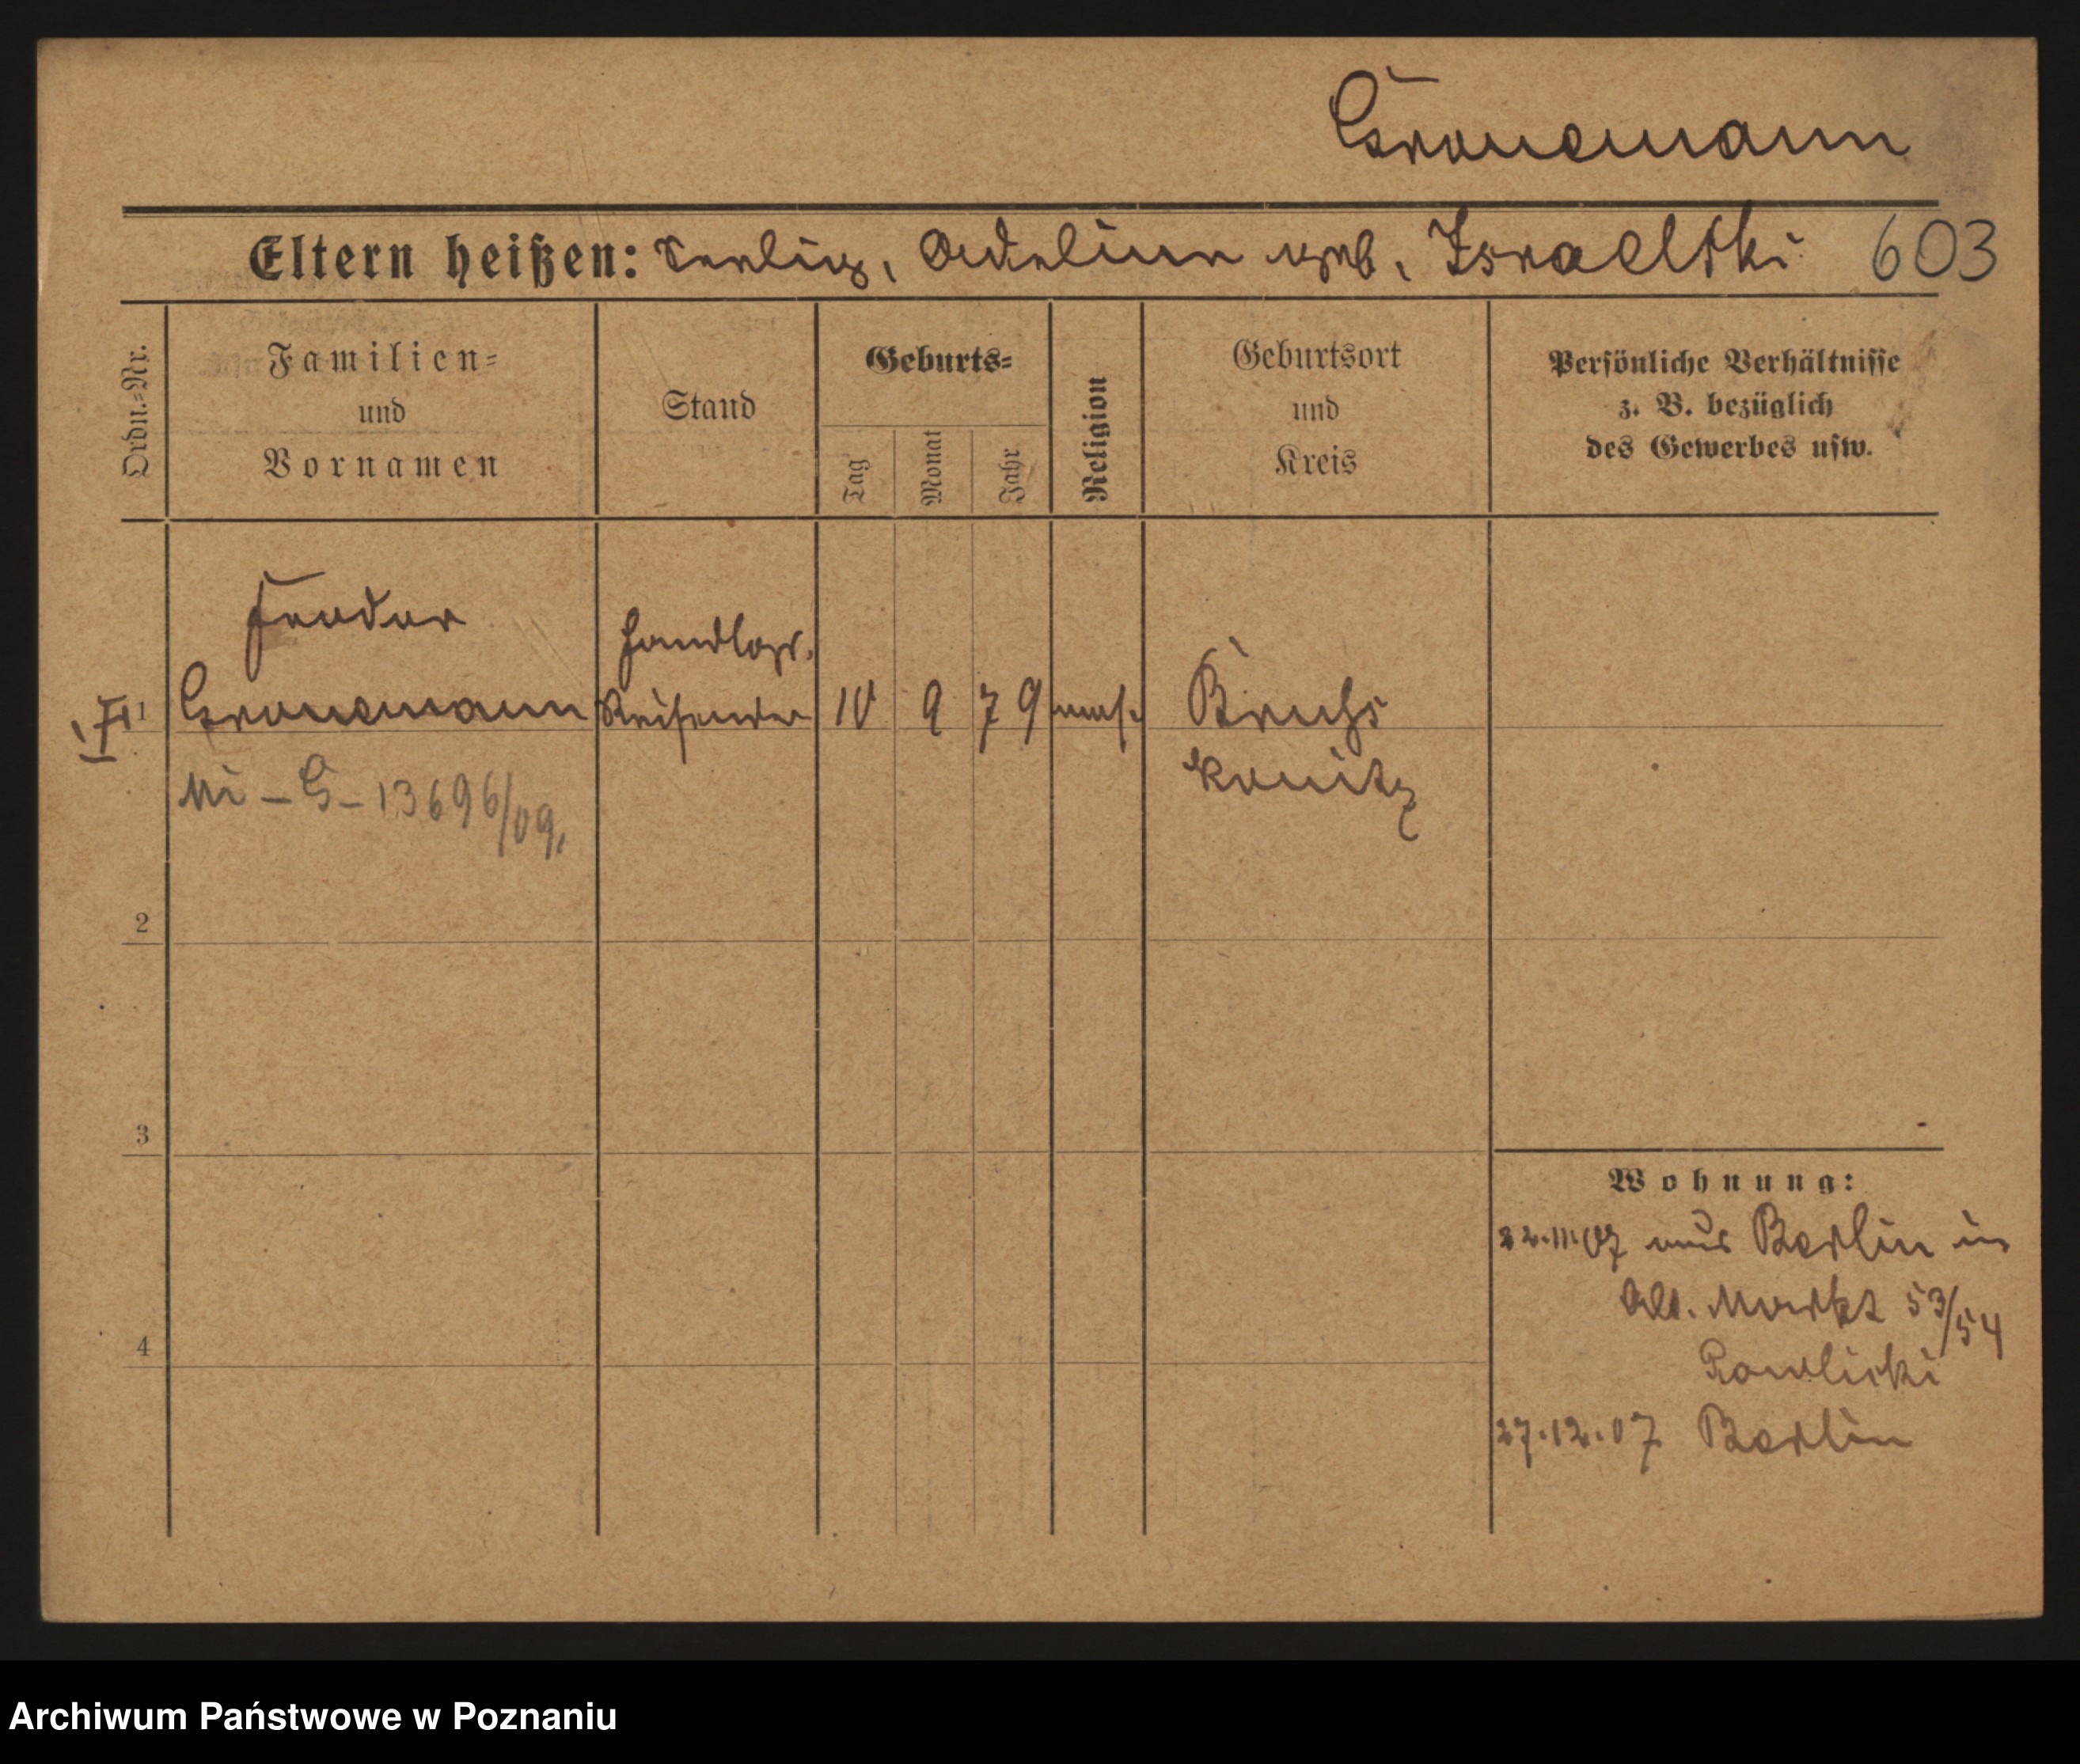 Gronemann
Eltern heißen: Seelig, Adeline geb. Israelski 603
Ordn.-Nr.
Familien-
und
Vornamen
Stand
Geburts-
Tag
Monat
Jahr
Religion
Geburtsort
und
Kreis
Persönliche Verhältnisse
z. B. bezüglich
des Gewerbes usw.
Feodor
Handlgs.
1 Gronemann Reisender 10 9 79 mos. Bruss
Mi - G - 13696/09.
Konitz
2
3
4
Wohnung:
22.11.07 aus Berlin in
Alt. Markt 53/54
Pawlicki
27.12.07 Berlin
Archiwum Państwowe w Poznaniu